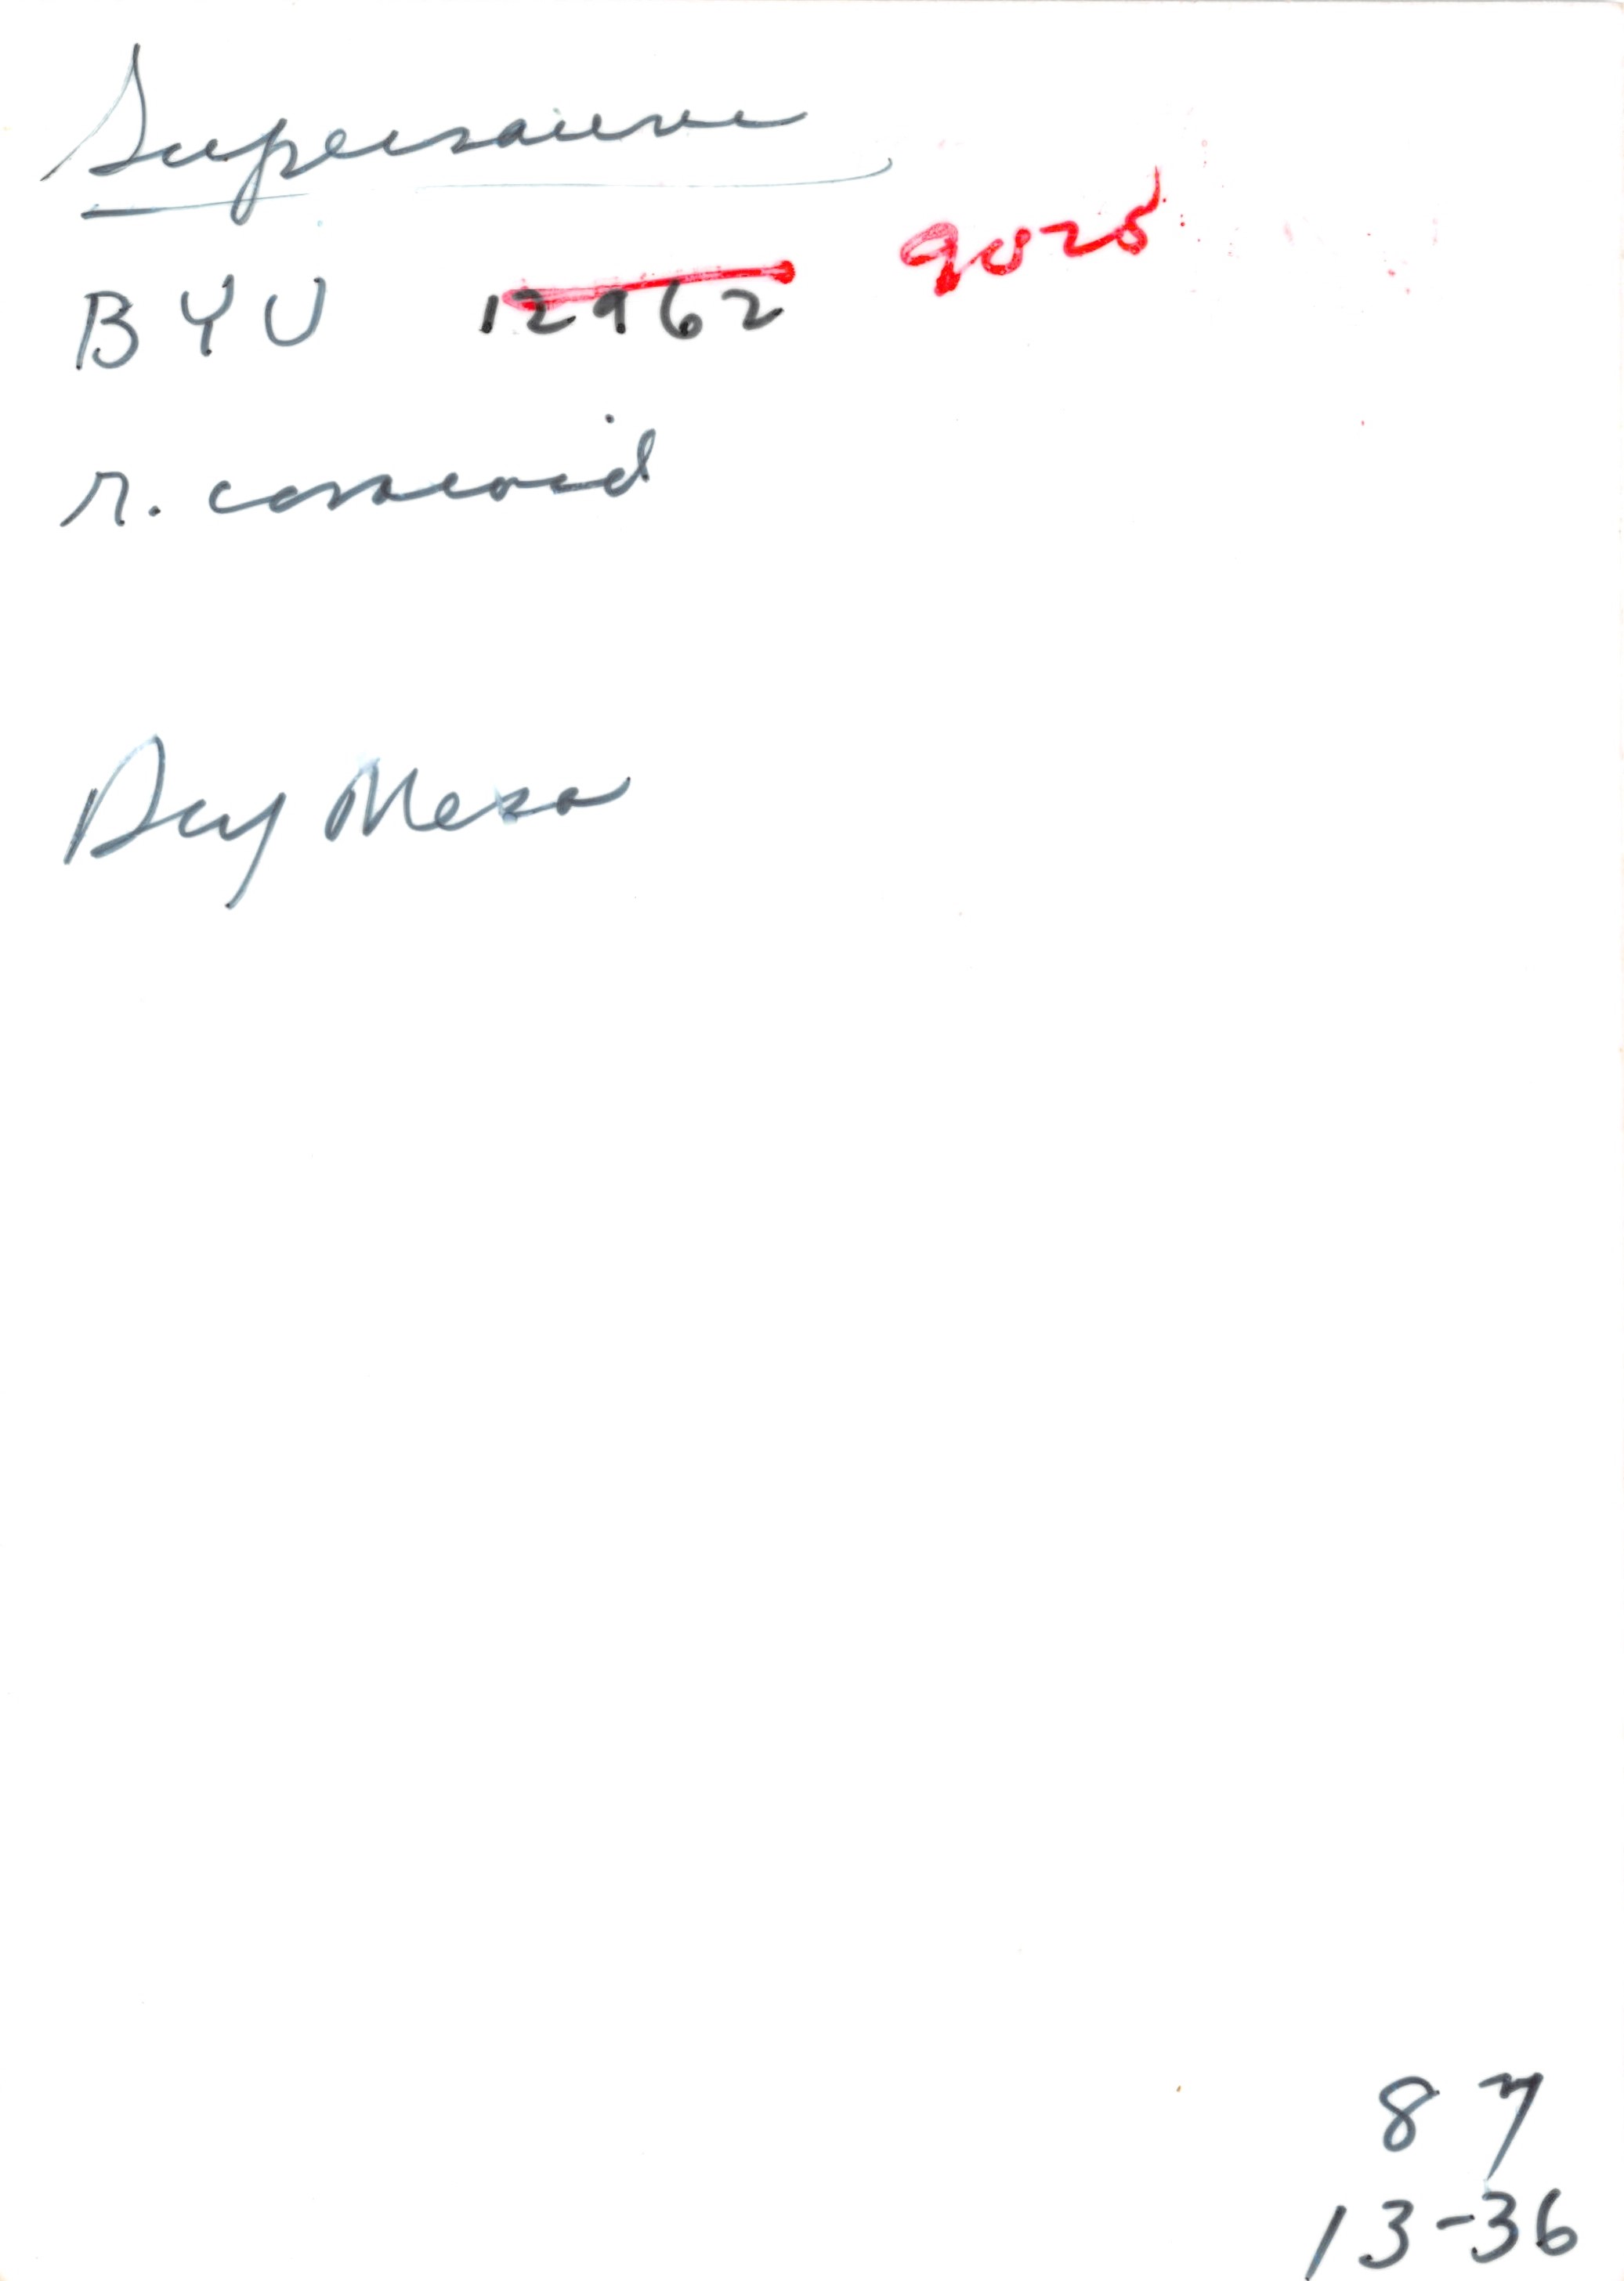 Supersaurus
BYU 12962 9025
r. coracoid
Dry Mesa
87
13-36